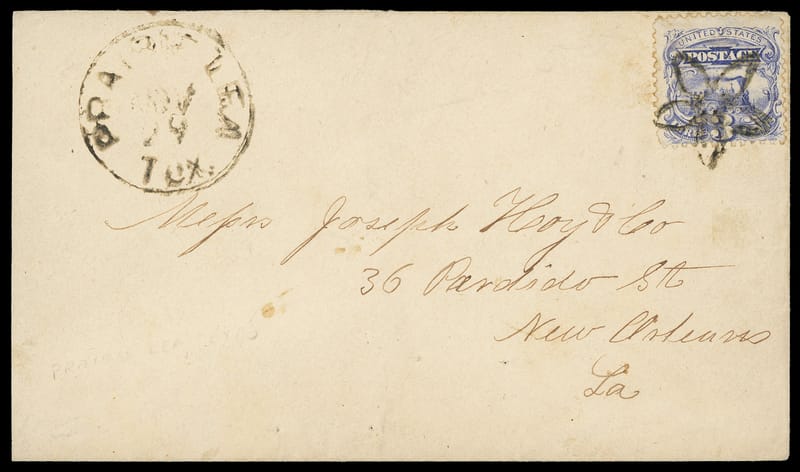 PRAIRIE LEA
29
Tex.
UNITED STATES
POSTAGE
3
Messrs Joseph Hoy & Co
36 Perdido St
New Orleans
La
PRAIRIE LEA